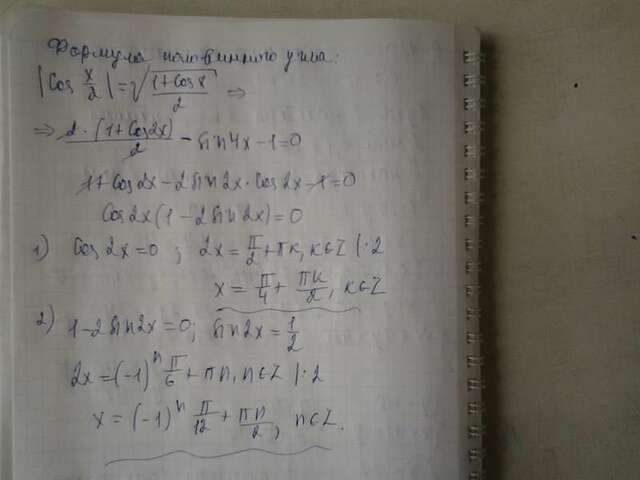 Формула половинного угла:
|Cos x/2| = √(1+Cos x)/2 ⇒
⇒ 2·(1+Cos2x)/2 - sin4x-1=0
1+Cos2x-2sin2x·Cos2x-1=0
Cos2x(1-2sin2x)=0
1) Cos2x=0; 2x=π/2+πk, k∈Z |:2
x = π/4 + πk/2, k∈Z
2) 1-2sin2x=0; sin2x=1/2
2x=(-1)ⁿ π/6 + πn, n∈Z |:2
x = (-1)ⁿ π/12 + πn/2, n∈Z.